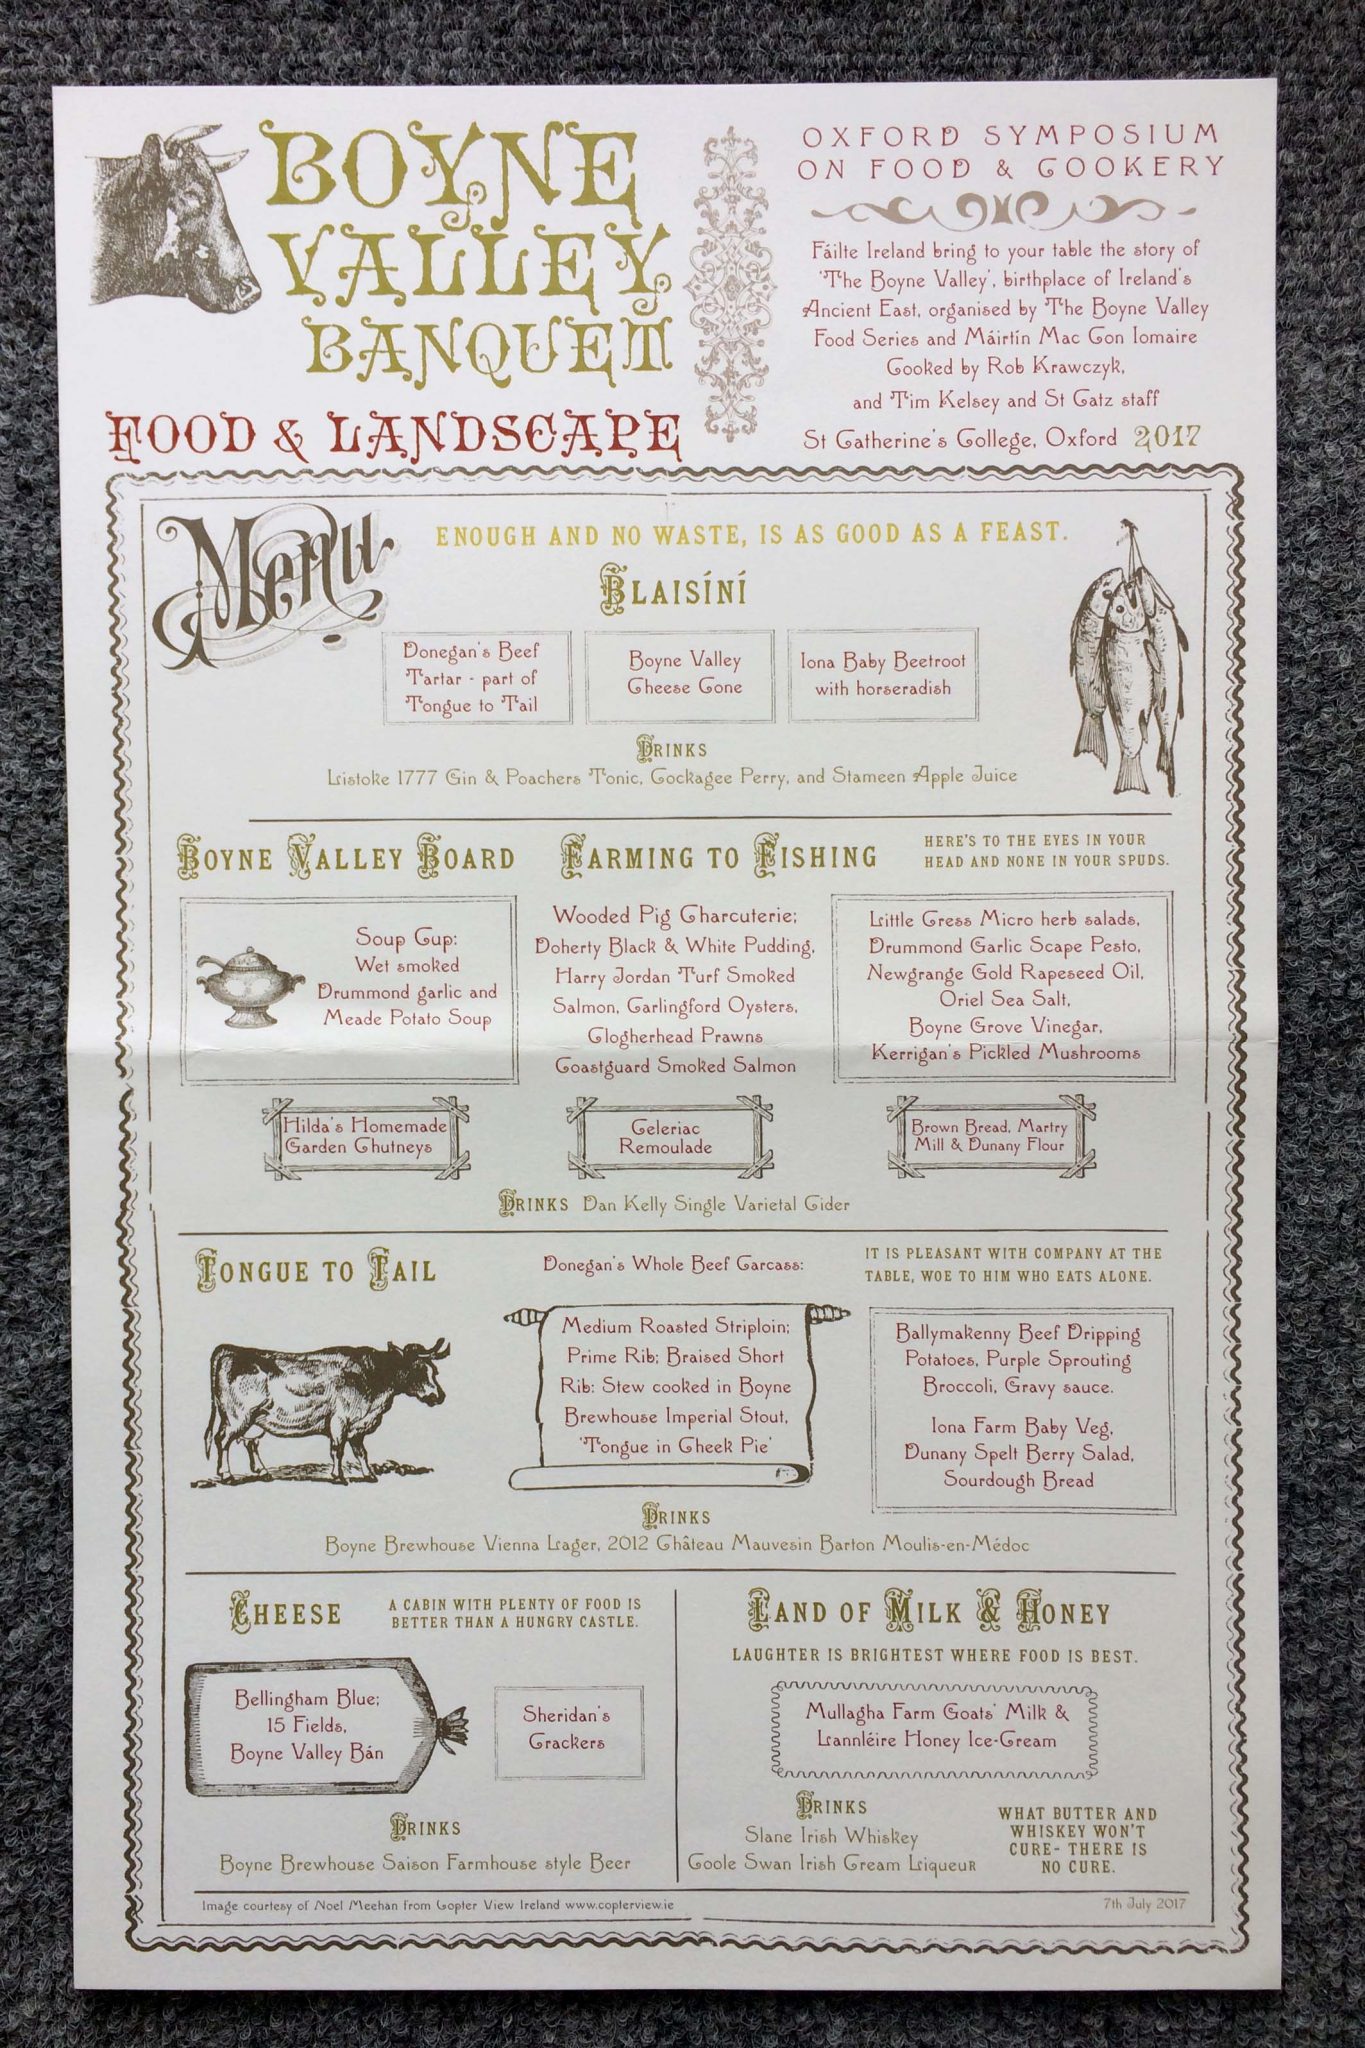 BOYNE
VALLEY
BANQUET
FOOD & LANDSCAPE
OXFORD SYMPOSIUM
ON FOOD & COOKERY
Fáilte Ireland bring to your table the story of
'The Boyne Valley', birthplace of Ireland's
Ancient East, organised by The Boyne Valley
Food Series and Máirtín Mac Con Iomaire
Cooked by Rob Krawczyk,
and Tim Kelsey and St Catz staff
St Catherine's College, Oxford 2017
Menu
ENOUGH AND NO WASTE, IS AS GOOD AS A FEAST.
BLAISÍNÍ
Donegan's Beef
Tartar - part of
Tongue to Tail
Boyne Valley
Cheese Cone
Iona Baby Beetroot
with horseradish
DRINKS
Listoke 1777 Gin & Poachers Tonic, Cockagee Perry, and Stameen Apple Juice
BOYNE VALLEY BOARD
FARMING TO FISHING
HERE'S TO THE EYES IN YOUR
HEAD AND NONE IN YOUR SPUDS.
Soup Cup:
Wet smoked
Drummond garlic and
Meade Potato Soup
Wooded Pig Charcuterie;
Doherty Black & White Pudding,
Harry Jordan Turf Smoked
Salmon, Carlingford Oysters,
Clogherhead Prawns
Coastguard Smoked Salmon
Little Cress Micro herb salads,
Drummond Garlic Scape Pesto,
Newgrange Gold Rapeseed Oil,
Oriel Sea Salt,
Boyne Grove Vinegar,
Kerrigan's Pickled Mushrooms
Hilda's Homemade
Garden Chutneys
Celeriac
Remoulade
Brown Bread, Martry
Mill & Dunany Flour
DRINKS Dan Kelly Single Varietal Cider
TONGUE TO TAIL
Donegan's Whole Beef Carcass:
IT IS PLEASANT WITH COMPANY AT THE
TABLE, WOE TO HIM WHO EATS ALONE.
Medium Roasted Striploin;
Prime Rib; Braised Short
Rib: Stew cooked in Boyne
Brewhouse Imperial Stout,
'Tongue in Cheek Pie'
Ballymakenny Beef Dripping
Potatoes, Purple Sprouting
Broccoli, Gravy sauce.
Iona Farm Baby Veg,
Dunany Spelt Berry Salad,
Sourdough Bread
DRINKS
Boyne Brewhouse Vienna Lager, 2012 Château Mauvesin Barton Moulis-en-Médoc
CHEESE
A CABIN WITH PLENTY OF FOOD IS
BETTER THAN A HUNGRY CASTLE.
Bellingham Blue;
15 Fields,
Boyne Valley Bán
Sheridan's
Crackers
DRINKS
Boyne Brewhouse Saison Farmhouse style Beer
LAND OF MILK & HONEY
LAUGHTER IS BRIGHTEST WHERE FOOD IS BEST.
Mullagha Farm Goats' Milk &
Lannléire Honey Ice-Cream
DRINKS
Slane Irish Whiskey
Coole Swan Irish Cream Liqueur
WHAT BUTTER AND
WHISKEY WON'T
CURE- THERE IS
NO CURE.
Image courtesy of Noel Meehan from Copter View Ireland www.copterview.ie
7th July 2017